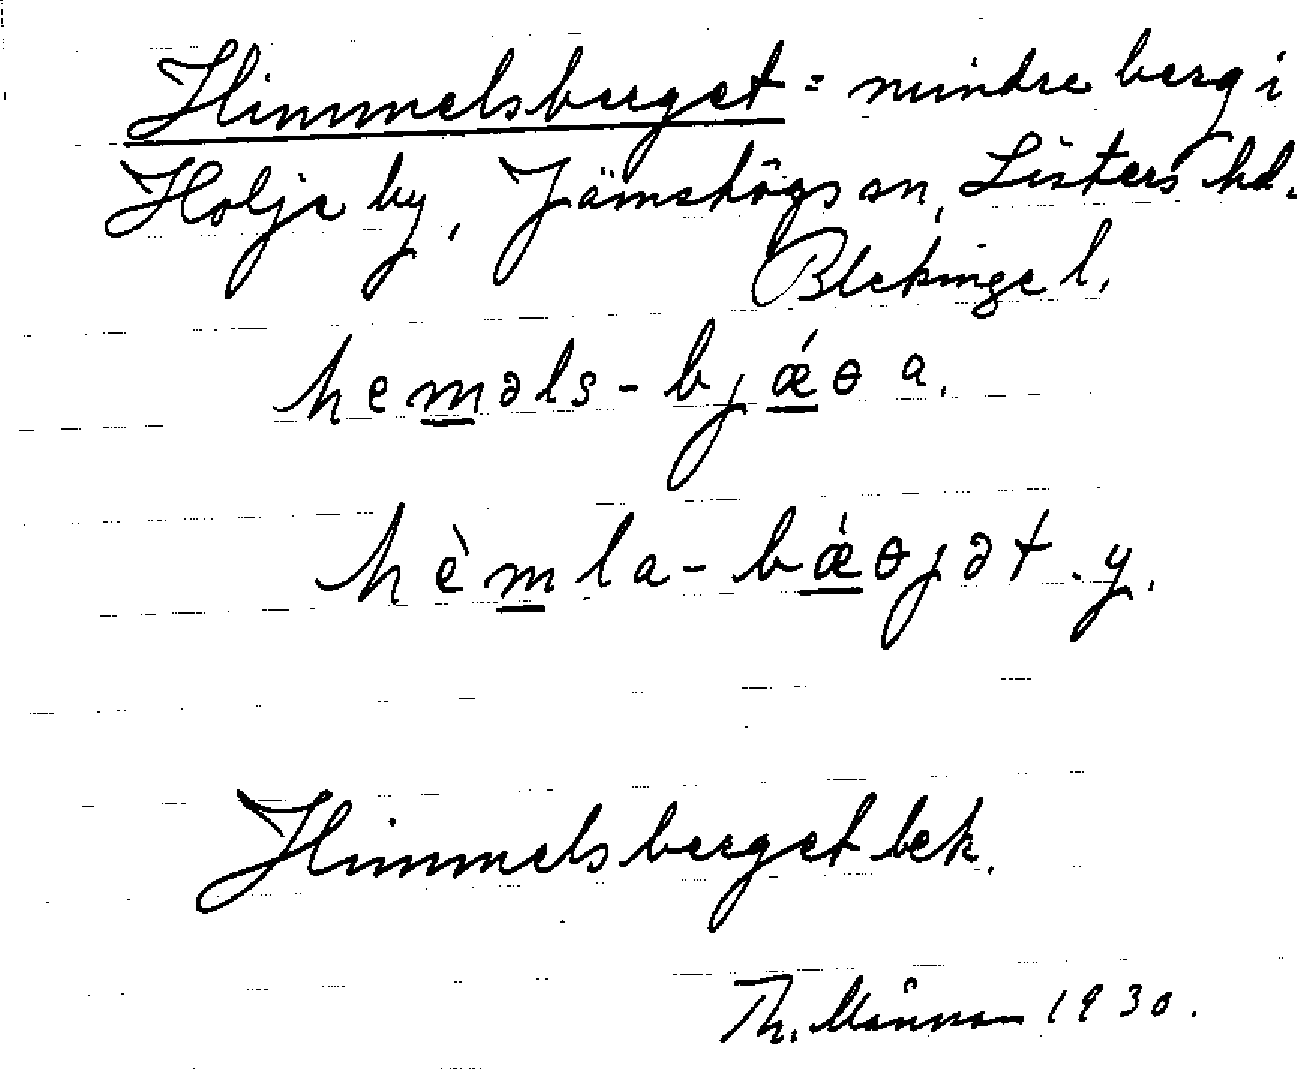 Himmelsberget = mindre berg i
Holje by, Jämshögs sn, Listers hd.
Blekinge l.
heməls-bjǽɵ a.
hèmla-bǽɵjət. y.
Himmelsberget bek.
Th. 1930.